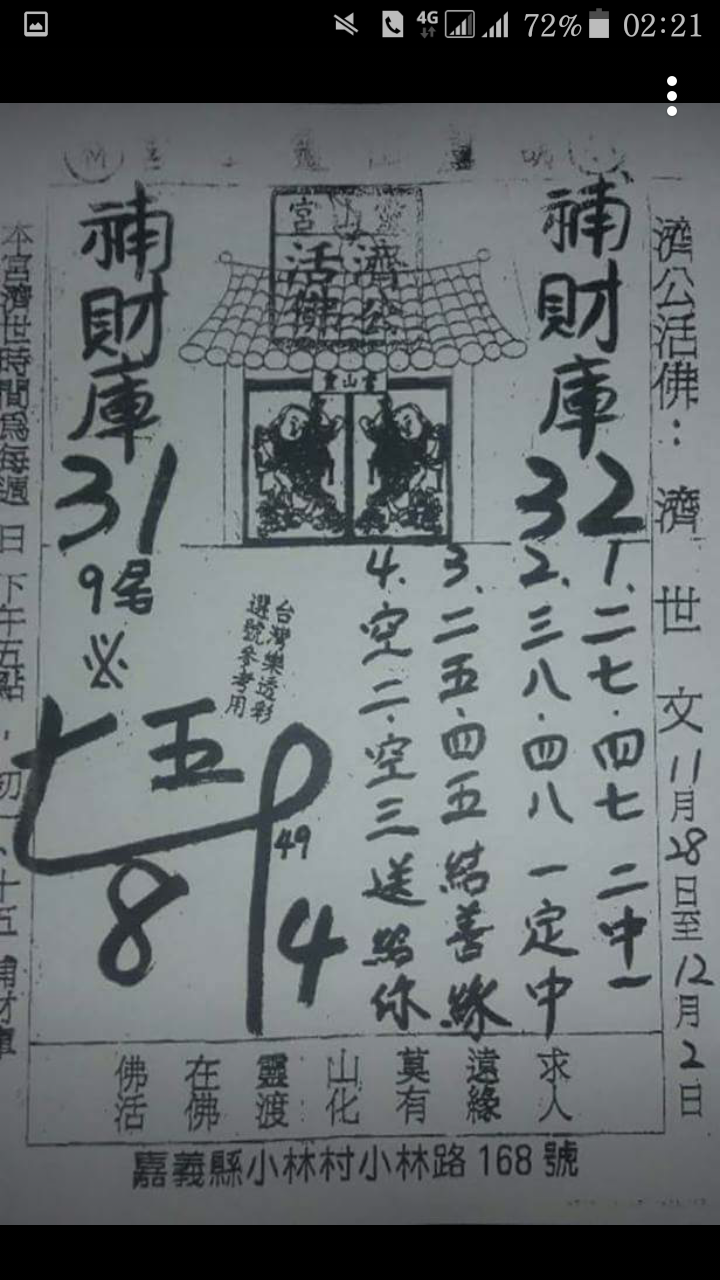 4G 72% 02:21
濟公活佛： 濟世文 11月28日至12月2日
補財庫
32
宮
濟公
活佛
靈山
補財庫
31
9尾
1、二七．四七 二中一
2、三八．四八 一定中
3、二五．四五 結善緣
4．空二．空三送給你
台灣樂透彩
選號參考用
七五
49
8
4
求人
遠緣
莫有
山化
靈渡
在佛
佛活
本宮濟世時間為每週 日 下午五點，初一、十五 補財庫
嘉義縣小林村小林路168號